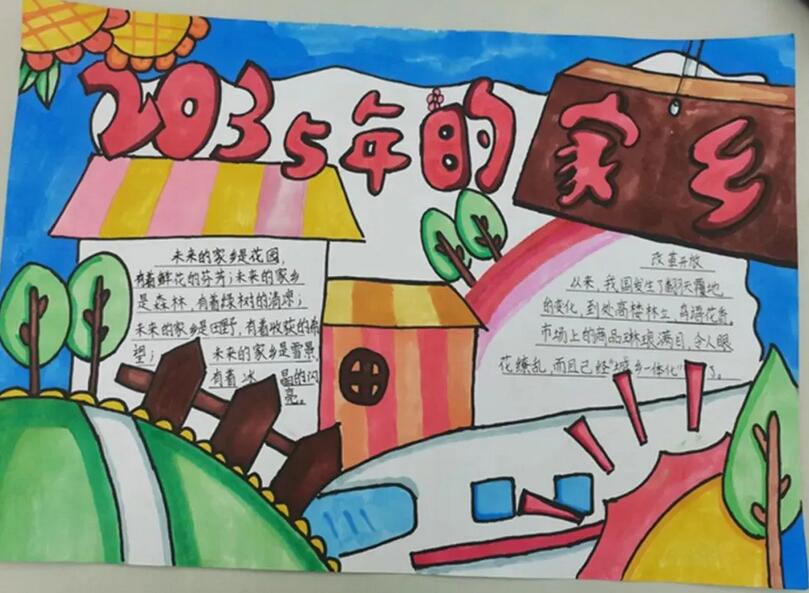 2035年的家乡
未来的家乡是花园,
有着鲜花的芬芳;未来的家乡
是森林,有着绿树的清凉;
未来的家乡是田野,有着收获的希
望; 未来的家乡是雪景,
有着冰 晶的闪
亮。
改革开放
以来,我国发生了翻天覆地
的变化,到处高楼林立,鸟语花香,
市场上的商品琳琅满目,令人眼
花缭乱,而且已经"城乡一体化"了。